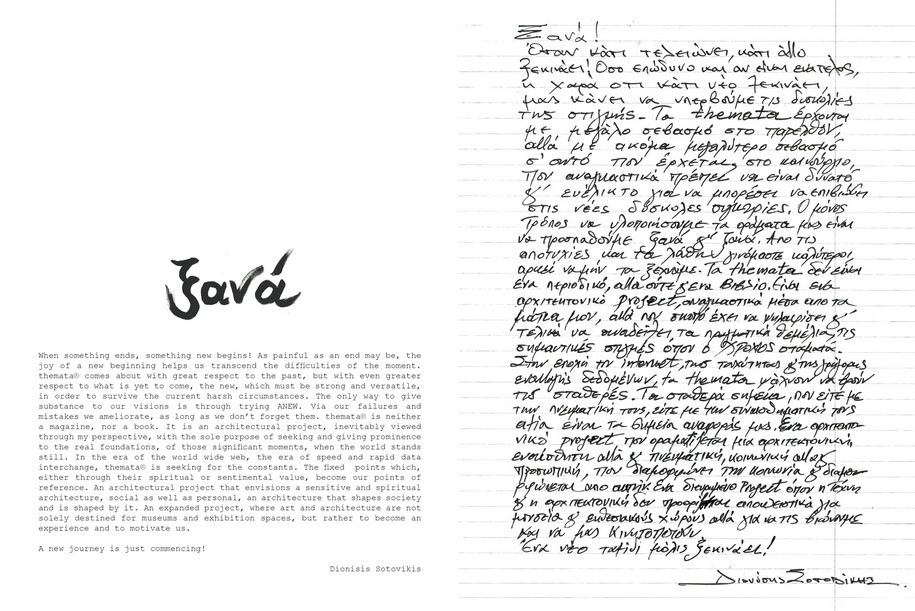 ξανά
When something ends, something new begins! As painful as an end may be, the
joy of a new beginning helps us transcend the difficulties of the moment.
themata® comes about with great respect to the past, but with even greater
respect to what is yet to come, the new, which must be strong and versatile,
in order to survive the current harsh circumstances. The only way to give
substance to our visions is through trying ANEW. Via our failures and
mistakes we ameliorate, as long as we don't forget them. themata® is neither
a magazine, nor a book. It is an architectural project, inevitably viewed
through my perspective, with the sole purpose of seeking and giving prominence
to the real foundations, of those significant moments, when the world stands
still. In the era of the world wide web, the era of speed and rapid data
interchange, themata® is seeking for the constants. The fixed points which,
either through their spiritual or sentimental value, become our points of
reference. An architectural project that envisions a sensitive and spiritual
architecture, social as well as personal, an architecture that shapes society
and is shaped by it. An expanded project, where art and architecture are not
solely destined for museums and exhibition spaces, but rather to become an
experience and to motivate us.
A new journey is just commencing!
Dionisis Sotovikis
Ξανά!
Όταν κάτι τελειώνει, κάτι άλλο
ξεκινάει! Όσο επώδυνο και αν είναι ένα τέλος,
η χαρά ότι κάτι νέο ξεκινάει,
μας κάνει να υπερβούμε τις δυσκολίες
της στιγμής. Τα themata έρχονται
με μεγάλο σεβασμό στο παρελθόν,
αλλά με ακόμα μεγαλύτερο σεβασμό
σ' αυτό που έρχεται, στο καινούργιο,
που αναγκαστικά πρέπει να είναι δυνατό
& ευέλικτο για να μπορέσει να επιβιώσει
στις νέες δύσκολες συγκυρίες. Ο μόνος
τρόπος να υλοποιήσουμε τα οράματά μας είναι
να προσπαθούμε ξανά & ξανά. Από τις
αποτυχίες και τα λάθη γινόμαστε καλύτεροι,
αρκεί να μην τα ξεχνάμε. Τα themata δεν είναι
ένα περιοδικό, αλλά ούτε & ένα βιβλίο. Είναι ένα
αρχιτεκτονικό project, αναγκαστικά μέσα από τα
μάτια μου, αλλά που σκοπό έχει να ψηλαφίσει &
τελικά να αναδείξει, τα πραγματικά θεμέλια, τις
σημαντικές στιγμές όπου ο χρόνος σταματά.
Στην εποχή του internet, της ταχύτητας & της γρήγορης
εναλλαγής δεδομένων, τα themata ψάχνουν να βρουν
τις σταθερές. Τα σταθερά σημεία, που είτε με
την πνευματική τους, είτε με την συναισθηματική τους
αξία είναι τα σημεία αναφοράς μας. Ένα αρχιτεκτο-
νικό project που οραματίζεται μία αρχιτεκτονική
ευαίσθητη αλλά & πνευματική, κοινωνική αλλά &
προσωπική, που διαμορφώνει την κοινωνία & διαμορ-
φώνεται από αυτήν. Ένα διευρυμένο Project όπου η τέχνη
& η αρχιτεκτονική δεν προορίζονται αποκλειστικά για
μουσεία & εκθεσιακούς χώρους αλλά για να τις βιώνουμε
και να μας κινητοποιούν.
Ένα νέο ταξίδι μόλις ξεκινάει!
Διονύσης Σοτοβίκης